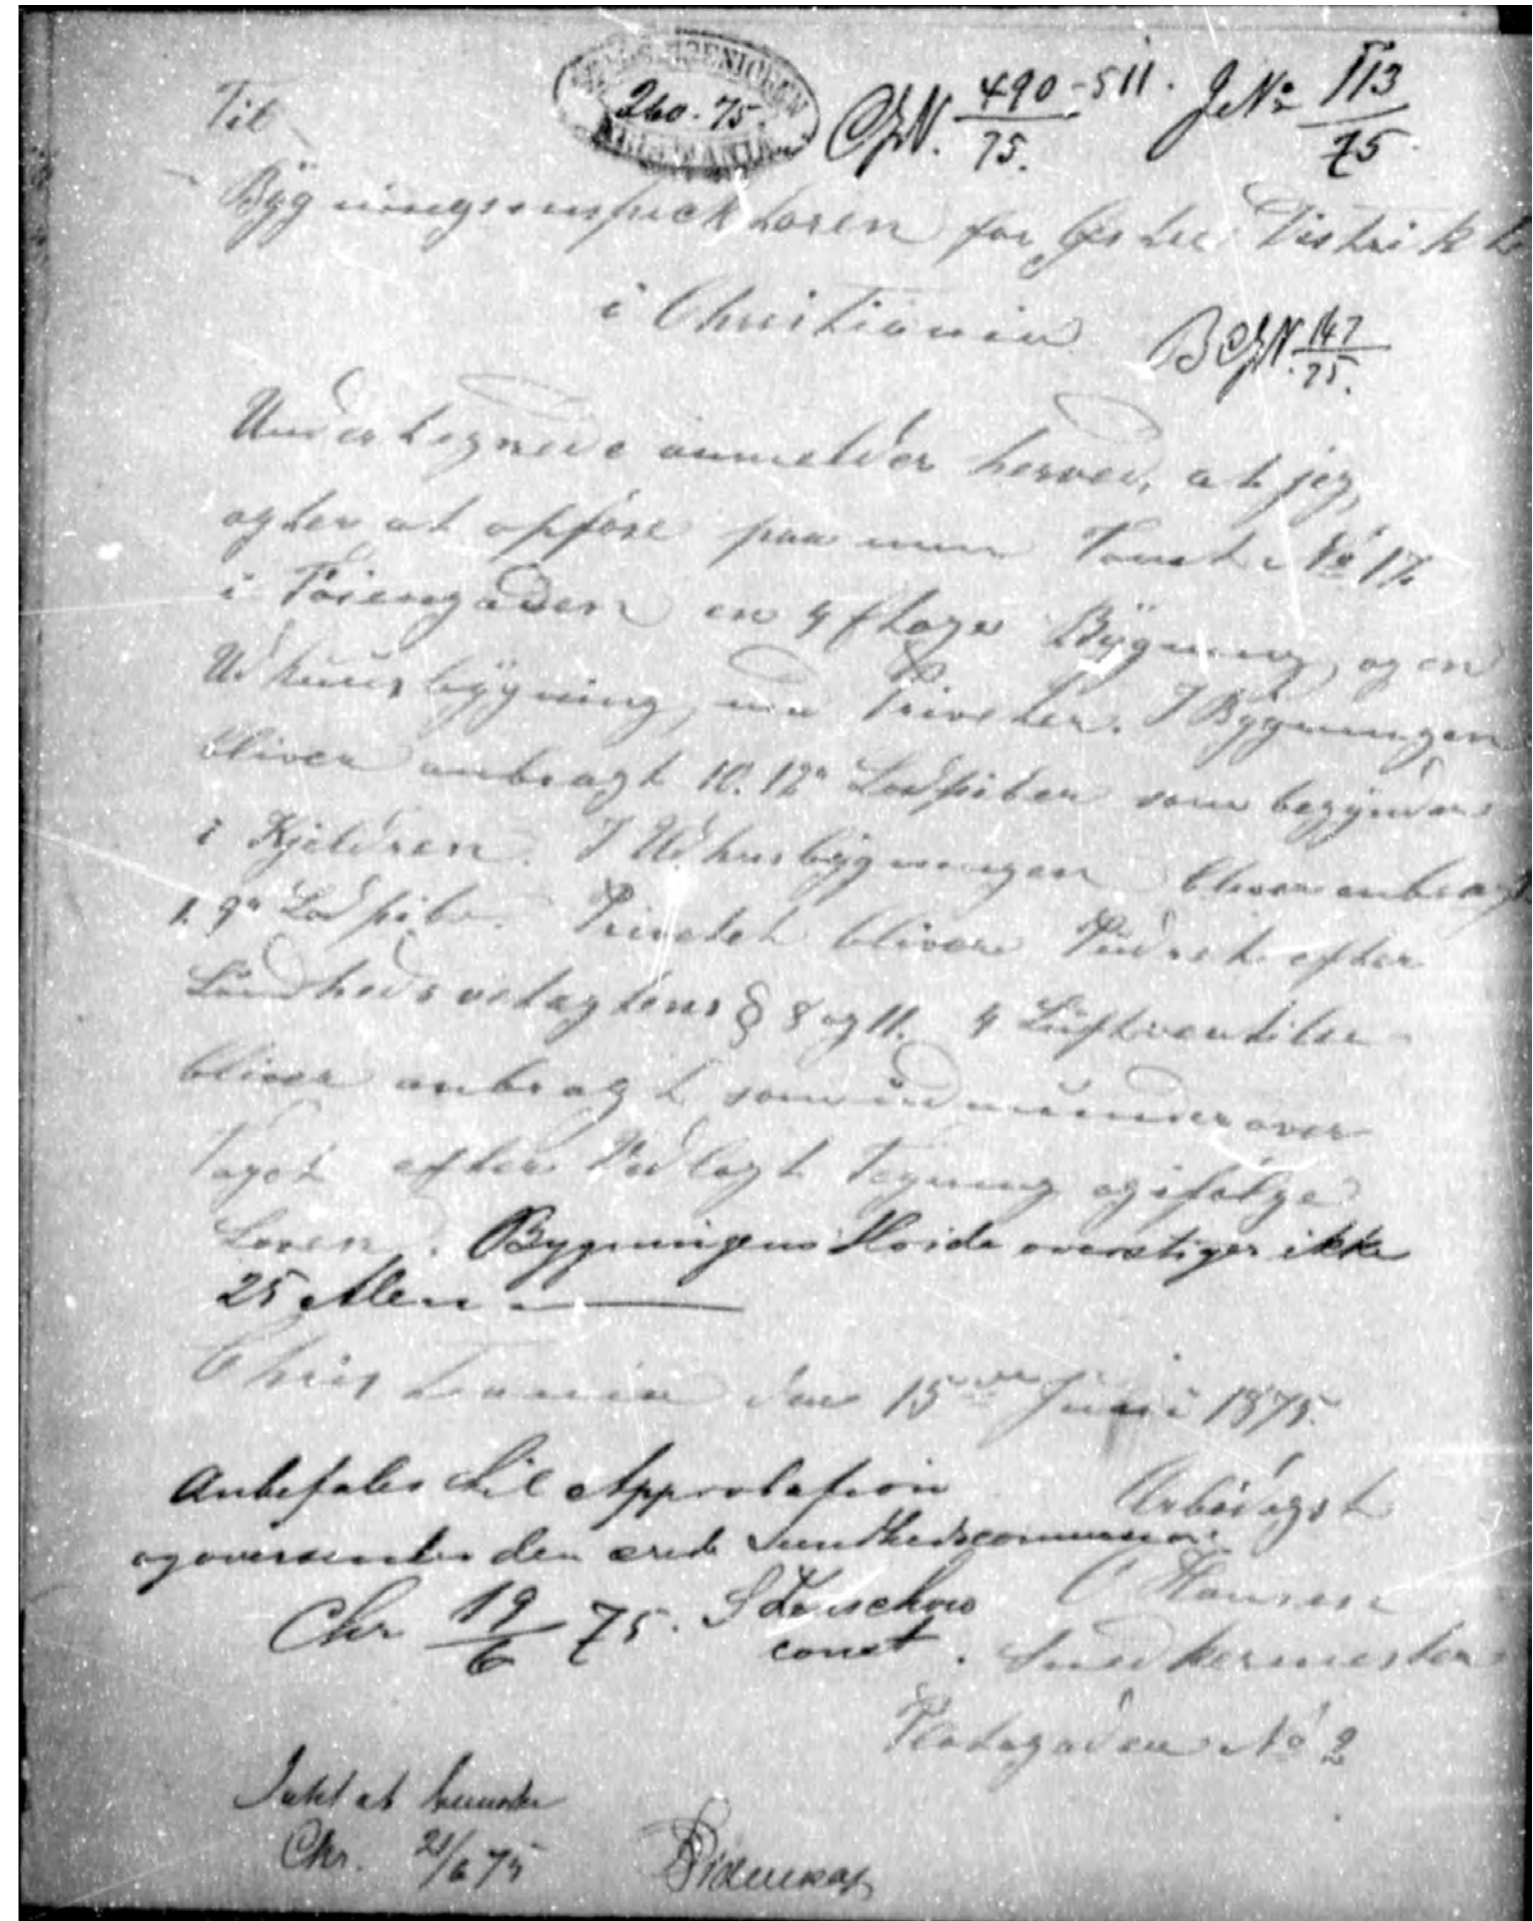 260-75.
490-511.
75.
J. No 113
75
Til
Bÿgningsinspecktoren for Østre Distrikt
i Christiania
147
75.
Undertegnede anmelder herved, at jeg
agter at opføre paa min Tomt No 17
i Tøiengaden en 4 Etages Bÿgning, og en
Udhuusbÿgning, med Priveter. I Bÿgningen
bliver anbragt 10. 12" Lodpiber som begÿnder
i Kjeldren. I Udhusbÿgningen bliver anbragt
1. 9" Lodpibe. Privetet blivere efter
Sundhedsvetagtens § 8 og 11. 4 Luftventiler
bliver anbragt som udmunder over
Taget efter Vedlagt Tegning og ifølge
Loven. Bygningens Høide overstiger ikke
25 Alen
Christiania den 15de Juni 1875.
Anbefales til Approbation
og oversendes den ærede Sundhedscommission
Chr 19/6 75.
const.
Ærbødigst
C Hansen
Snedkermester
Platagaden No 2
Intet at bemærke
Chr. 21/6 75